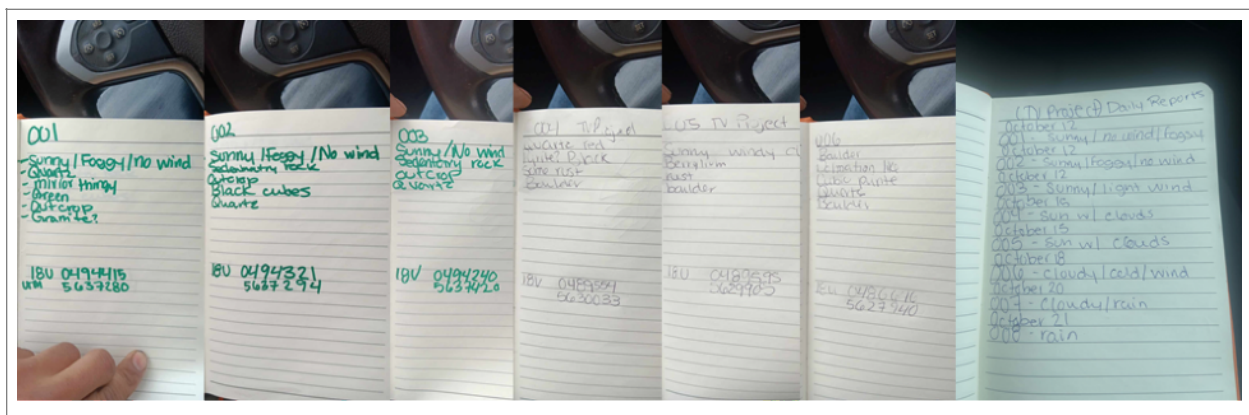 001
- Sunny/Foggy/no wind
- Quartz
- mirior thingy
- Green
- Outcrop
- Granite?
18U 0494415
UTM 5637280
002
Sunny/Foggy/No wind
Sedemintry rock
Outcrop
Black cubes
Quartz
18U 0494321
5637294
003
Sunny/No wind
Sedemintry rock
Outcrop
Quartz
18V 0494240
5637420
004 TV Project
Quartz red
Some rust
Boulder
18U 0489554
5630033
005 TV Project
Sunny windy cl
Berylium
rust
boulder
18U 0489595
5629905
006
Boulder
Quartz
Boulder
5627940
(TV Project) Daily Reports
October 12
001 - Sunny/no wind/foggy
October 12
002 - Sunny/foggy/no wind
October 12
003 - Sunny/light wind
October 15
004 - Sun w/ clouds
October 15
005 - Sun w/ clouds
October 18
006 - cloudy/cold/wind
October 20
007 - Cloudy/rain
October 21
008 - rain